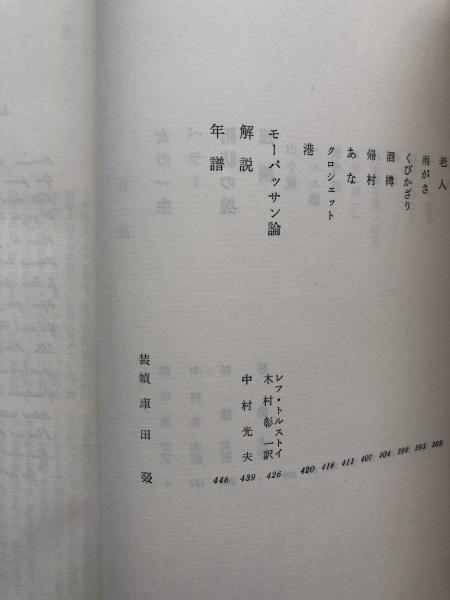 老人 388
雨がさ 393
くびかざり 398
酒樽 404
帰村 407
あな 411
クロシェット 416
港 420
モーパッサン論 レフ・トルストイ
木村彰一訳 426
解説 中村光夫 439
年譜 446
装幀 庫田叕